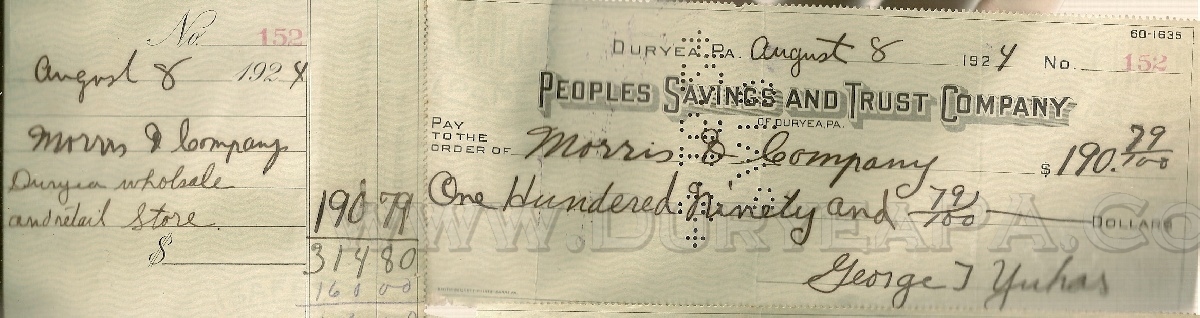 No. 152
August 8 1924
Morris & Company
Duryea wholsale
and retail Store.
190 79
$
314 80
16 00
60-1635
DURYEA, PA. August 8 1924 No. 152
PEOPLES SAVINGS AND TRUST COMPANY
OF DURYEA, PA.
PAY
TO THE
ORDER OF Morris & Company $190.79/100
One Hundered Ninety and 79/100 DOLLARS
WWW.DURYEAPA.CO
George J Yuhas